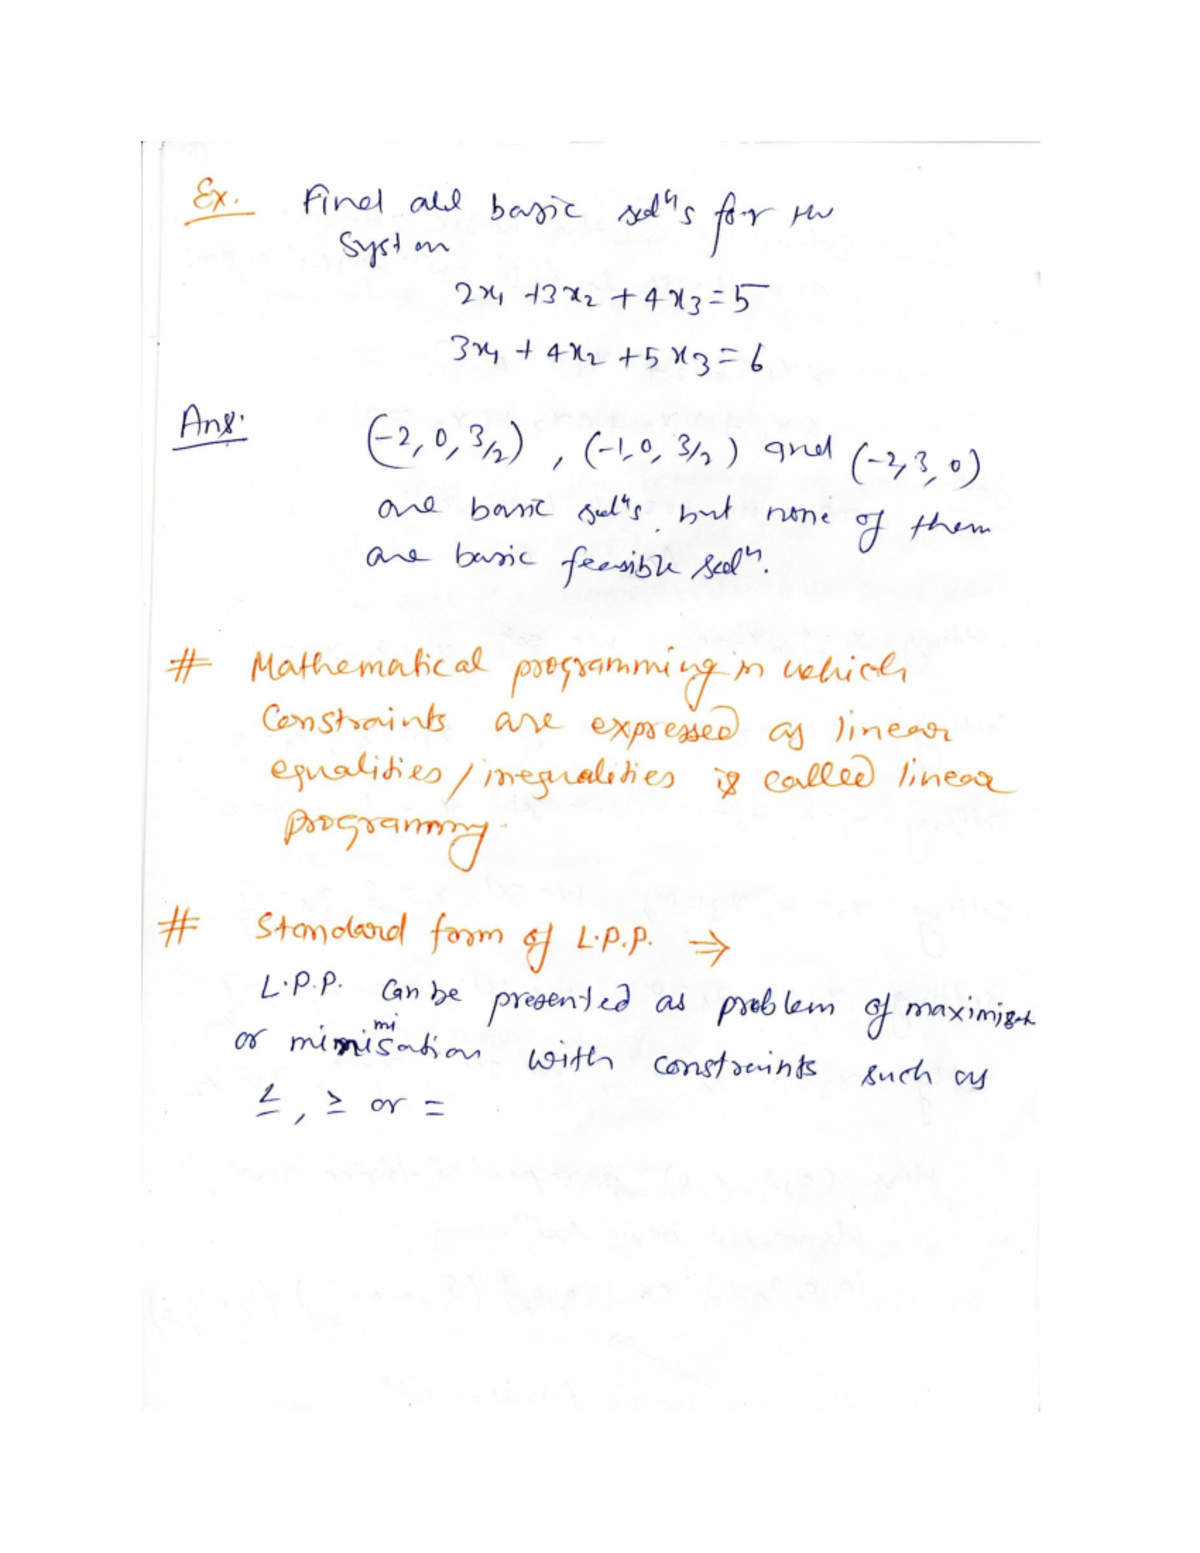 Ex. Find all basic solⁿs for the
System
2x₁ + 3x₂ + 4x₃ = 5
3x₁ + 4x₂ + 5x₃ = 6
Ans. (-2, 0, 3/2), (-1, 0, 3/2) and (-2, 3, 0)
are basic solⁿs but none of them
are basic feasible solⁿ.
# Mathematical programming in which
Constraints are expressed as linear
equalities / inequalities is called linear
programmg.
# Standard form of L.P.P. ⇒
L.P.P. Can be presented as problem of
or minimisation with constraints such as
≤, ≥ or =